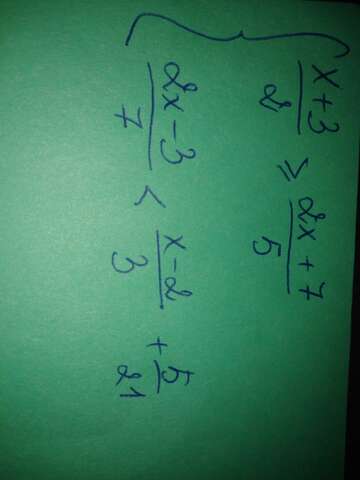 { (x+3)/2 ≥ (2x+7)/5
(2x-3)/7 < (x-2)/3 + 5/21